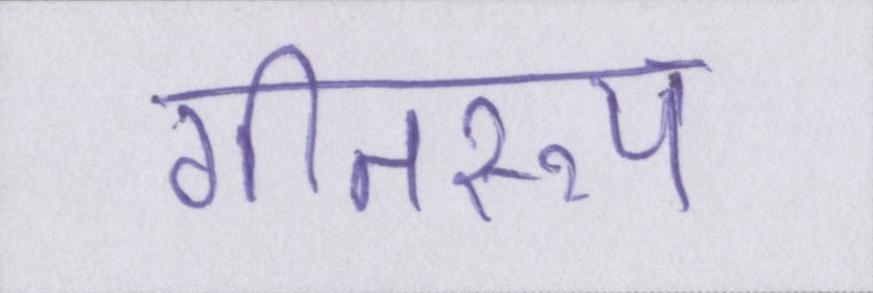 गीतरूप